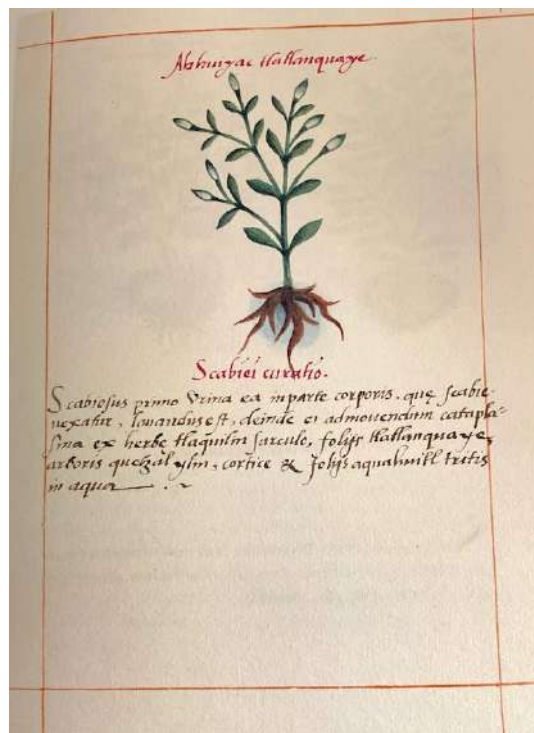 Ahhuiyac tlallanquaye.
Scabiei curatio.
Scabiosus primo Vrina ea in parte corporis. quę scabie
uexatur, lauandus est, deinde ei admouendum catapla=
sma ex herbe tlaquilin sarculo, folijs tlallanquaye,
arboris quetzal ylin, cortice & folijs aquahuitl tritis
in aqua